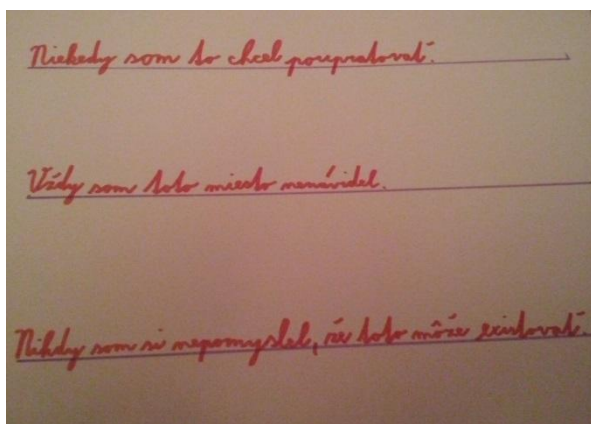 Niekedy som to chcel poupratovať.
Vždy som toto miesto nenávidel.
Nikdy som si nepomyslel, že toto môže existovať.